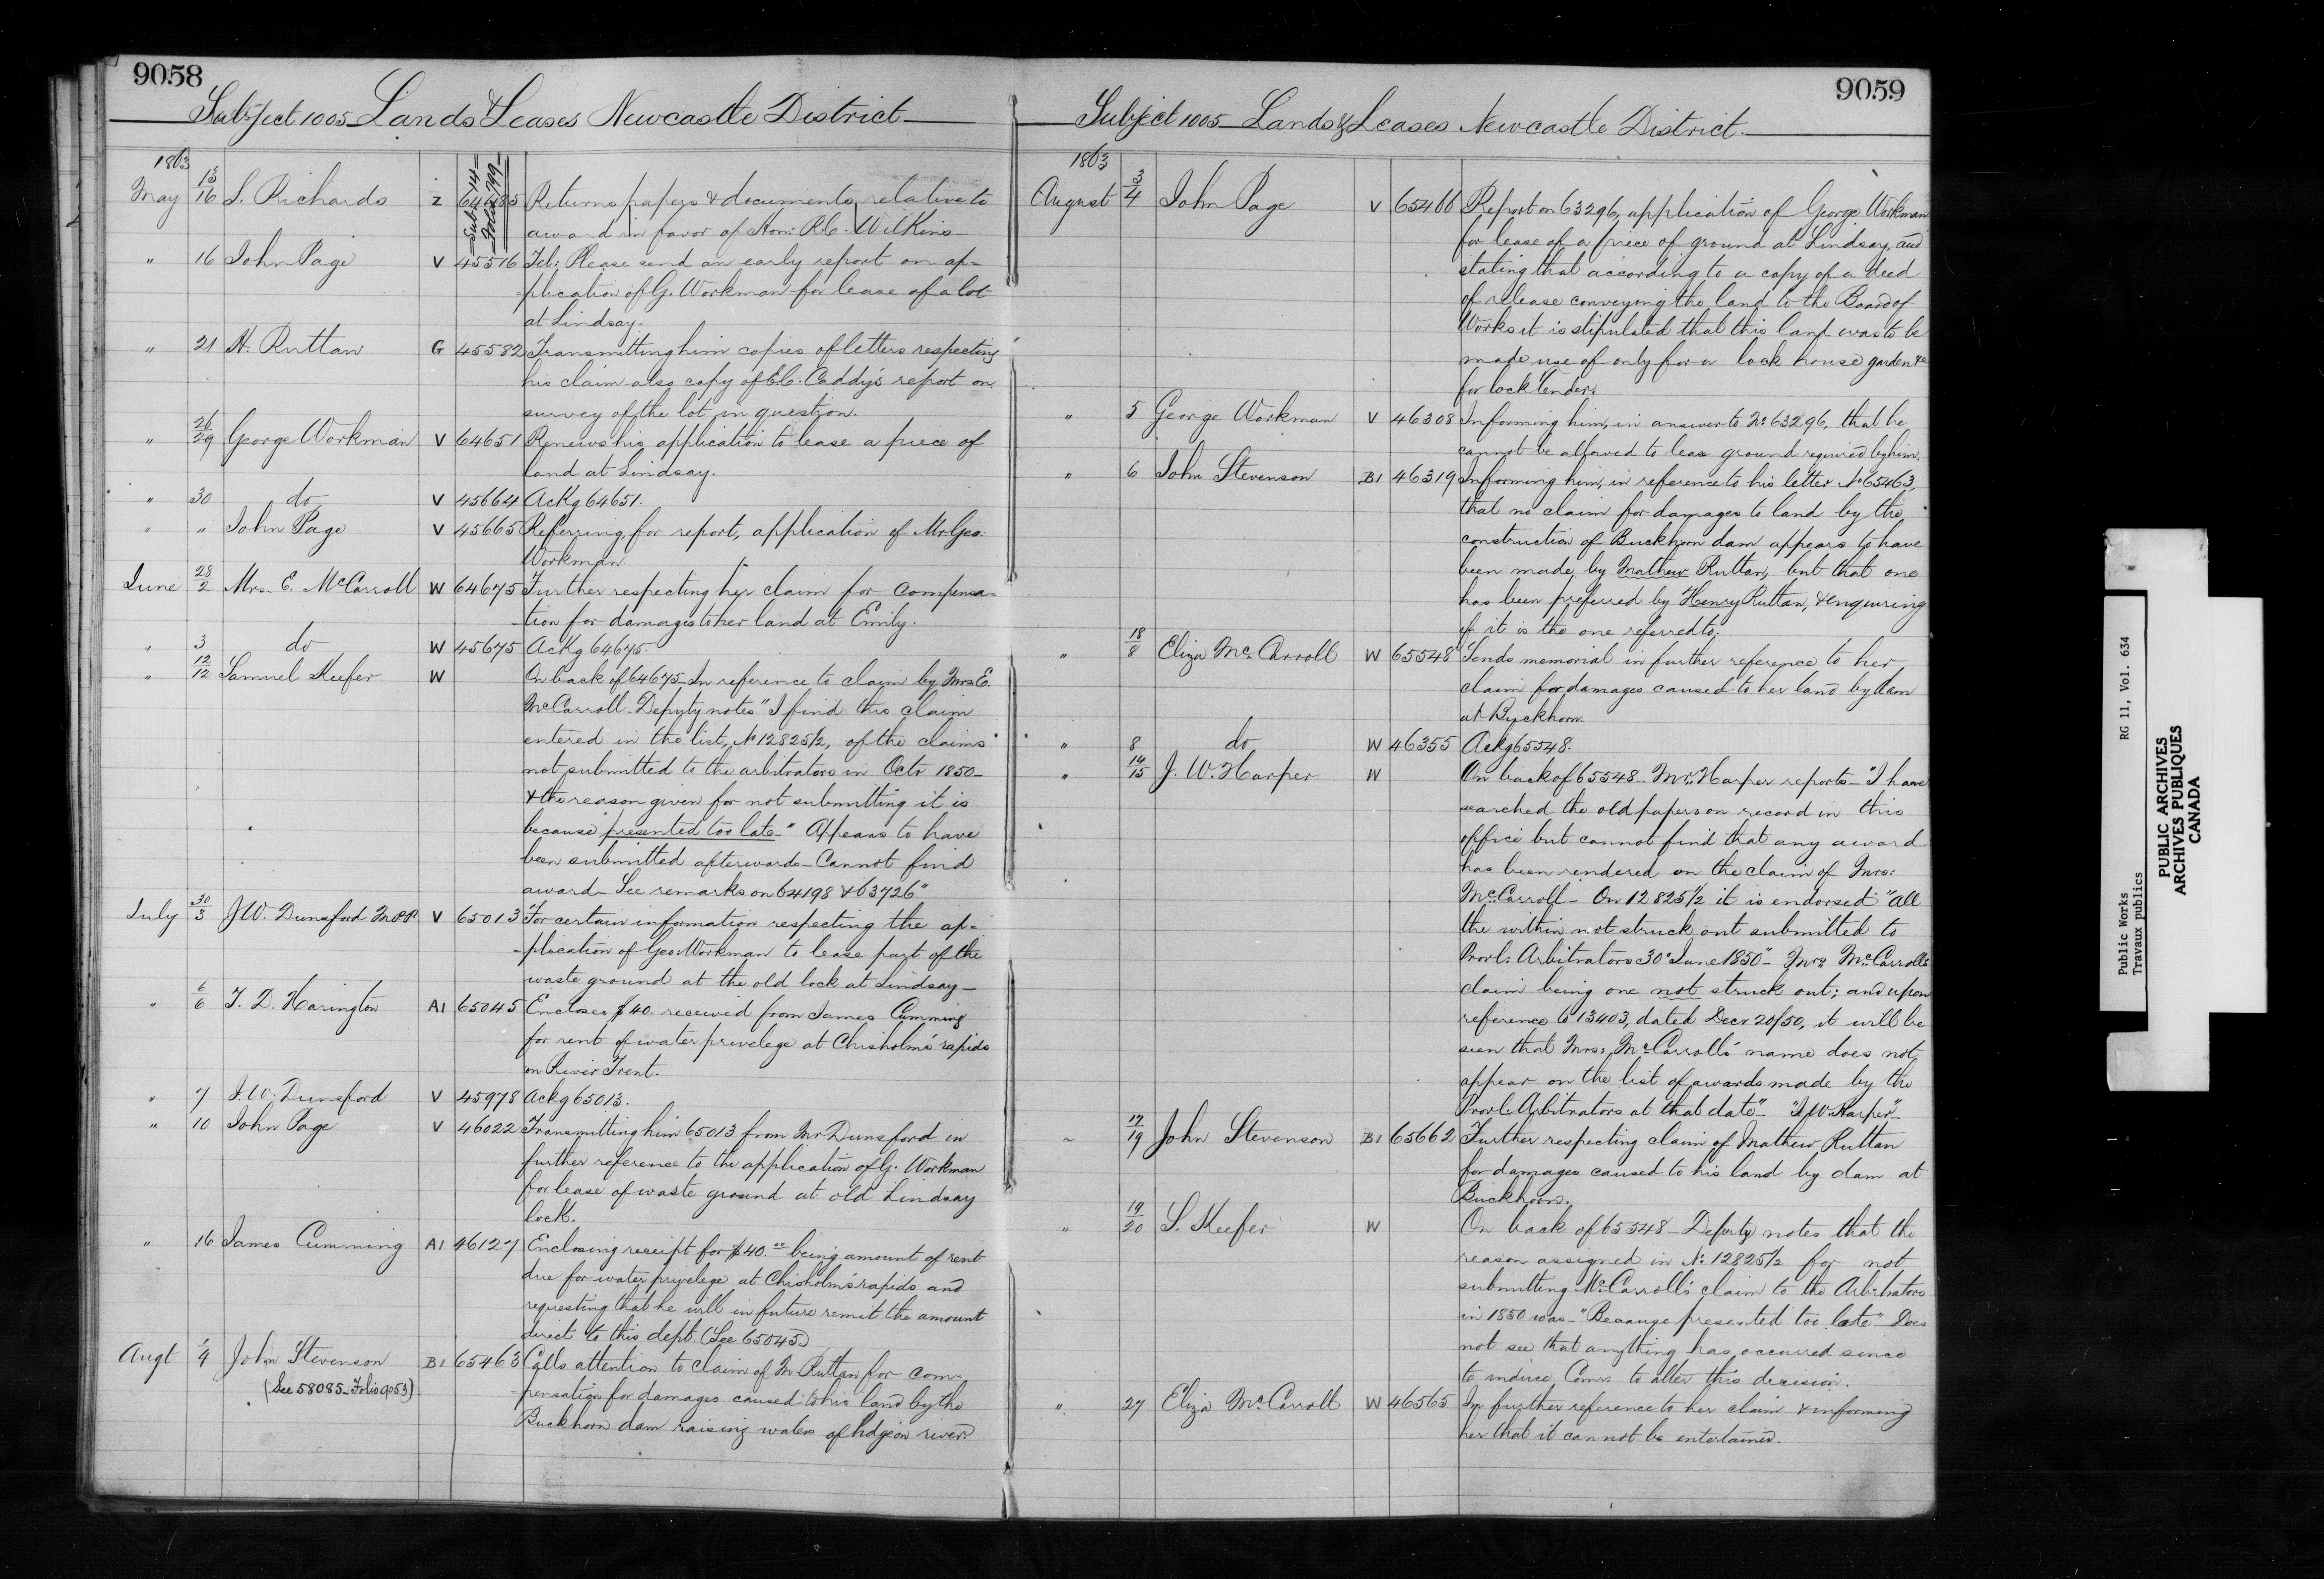 9058
Subject 1005 Lands & Leases Newcastle District
1863
May 13/16 S. Richards Z 64485 Returns papers & documents relative to
Sub: 14 Folio 799
award in favor of Hon: R.C. Wilkins
" 16 John Page V 45516 Tel: Please send an early report on ap=
=plication of G. Workman for lease of a lot
at Lindsay.
" 21 H. Ruttan G 45582 Transmitting him copies of letters respecting
his claim also copy of E.C. Caddy's report on
survey of the lot in question.
" 26/29 George Workman V 64651 Renews his application to lease a piece of
land at Lindsay.
" 30 do V 45664 Ackg 64651.
" " John Page V 45665 Referring for report, application of Mr Geo:
Workman
June 28/2 Mrs. E. McCarroll W 64675 Further respecting her claim for compensa=
=tion for damages to her land at Emily.
" 3 do W 45675 Ackg 64675.
" 12/12 Samuel Keefer W On back of 64675 In reference to claim by Mrs E.
McCarroll - Deputy notes "I find this claim
entered in the list, No 12825½, of the claims
not submitted to the arbitrators in Octr 1850 -
& the reason given for not submitting it is
because "presented too late -" Appears to have
been submitted afterwards - Cannot find
award - See remarks on 64198 & 63726"
July 30/3 J.W. Dunsford M.P.P. V 65013 For certain information respecting the ap=
=plication of Geo: Workman to lease part of the
waste ground at the old lock at Lindsay -
" 6/6 T. D. Harington A1 65045 Encloses $40. received from James Cumming
for rent of water privelege at Chisholm's rapids
on River Trent.
" 7 J.W. Dunsford V 45978 Ackg 65013.
" 10 John Page V 46022 Transmitting him 65013 from Mr Dunsford in
further reference to the application of G. Workman
for lease of waste ground at old Lindsay
lock.
" 16 James Cumming A1 46127 Enclosing receipt for $40.00 being amount of rent
due for water privelege at Chisholm's rapids and
requesting that he will in future remit the amount
direct to this dept. (See 65045)
Augt 1/4 John Stevenson B1 65463 Calls attention to claim of M. Ruttan for com=
(See 58085 - Folio 9053)
=pensation for damages caused to his land by the
Buckhorn dam raising waters of Pidgeon river.
9059
Subject 1005 - Lands & Leases Newcastle District.
1863
August 3/4 John Page V 65466 Report on 63296, application of George Workman
for lease of a piece of ground at Lindsay, and
stating that according to a copy of a deed
of release conveying the land to the Board of
Works it is stipulated that this land was to be
made use of only for a lock house garden &c
for lock Tender.
" 5 George Workman V 46308 Informing him, in answer to No 63296, that he
cannot be allowed to lease ground required by him.
" 6 John Stevenson B1 46319 Informing him, in reference to his letter No 65463,
that no claim for damages to land by the
construction of Buckhorn dam appears to have
been made by Mathew Ruttan, but that one
has been preferred by Henry Ruttan, & enquiring
if it is the one referred to.
" 18/8 Eliza McCarroll W 65548 Sends memorial in further reference to her
claim for damages caused to her land by dam
at Buckhorn.
" 8 do W 46355 Ackg 65548.
" 14/15 J. W. Harper W On back of 65548 - Mr. Harper reports - "I have
searched the old papers on record in this
office but cannot find that any award
has been rendered on the claim of Mrs:
McCarroll - On 12825½ it is endorsed "All
the within not struck out submitted to
Provl: Arbitrators 30th June 1850" - Mrs McCarroll's
claim being one not struck out; and upon
reference to 13403, dated Decr 20/50, it will be
seen that Mrs: McCarroll's name does not
appear on the list of awards made by the
Provl: Arbitrators at that date" - "J.W. Harper" -
" 17/19 John Stevenson B1 65662 Further respecting claim of Mathew Ruttan
for damages caused to his land by dam at
Buckhorn.
" 19/20 S. Keefer W On back of 65548 - Deputy notes that the
reason assigned in No 12825½ for not
submitting McCarroll's claim to the Arbitrators
in 1850 was - "Because presented too late" - Does
not see that anything has occurred since
to induce Comr. to alter this decision.
" 27 Eliza McCarroll W 46565 In further reference to her claim & informing
her that it cannot be entertained.
Public Works RG 11, Vol. 634
Travaux publics
PUBLIC ARCHIVES
ARCHIVES PUBLIQUES
CANADA